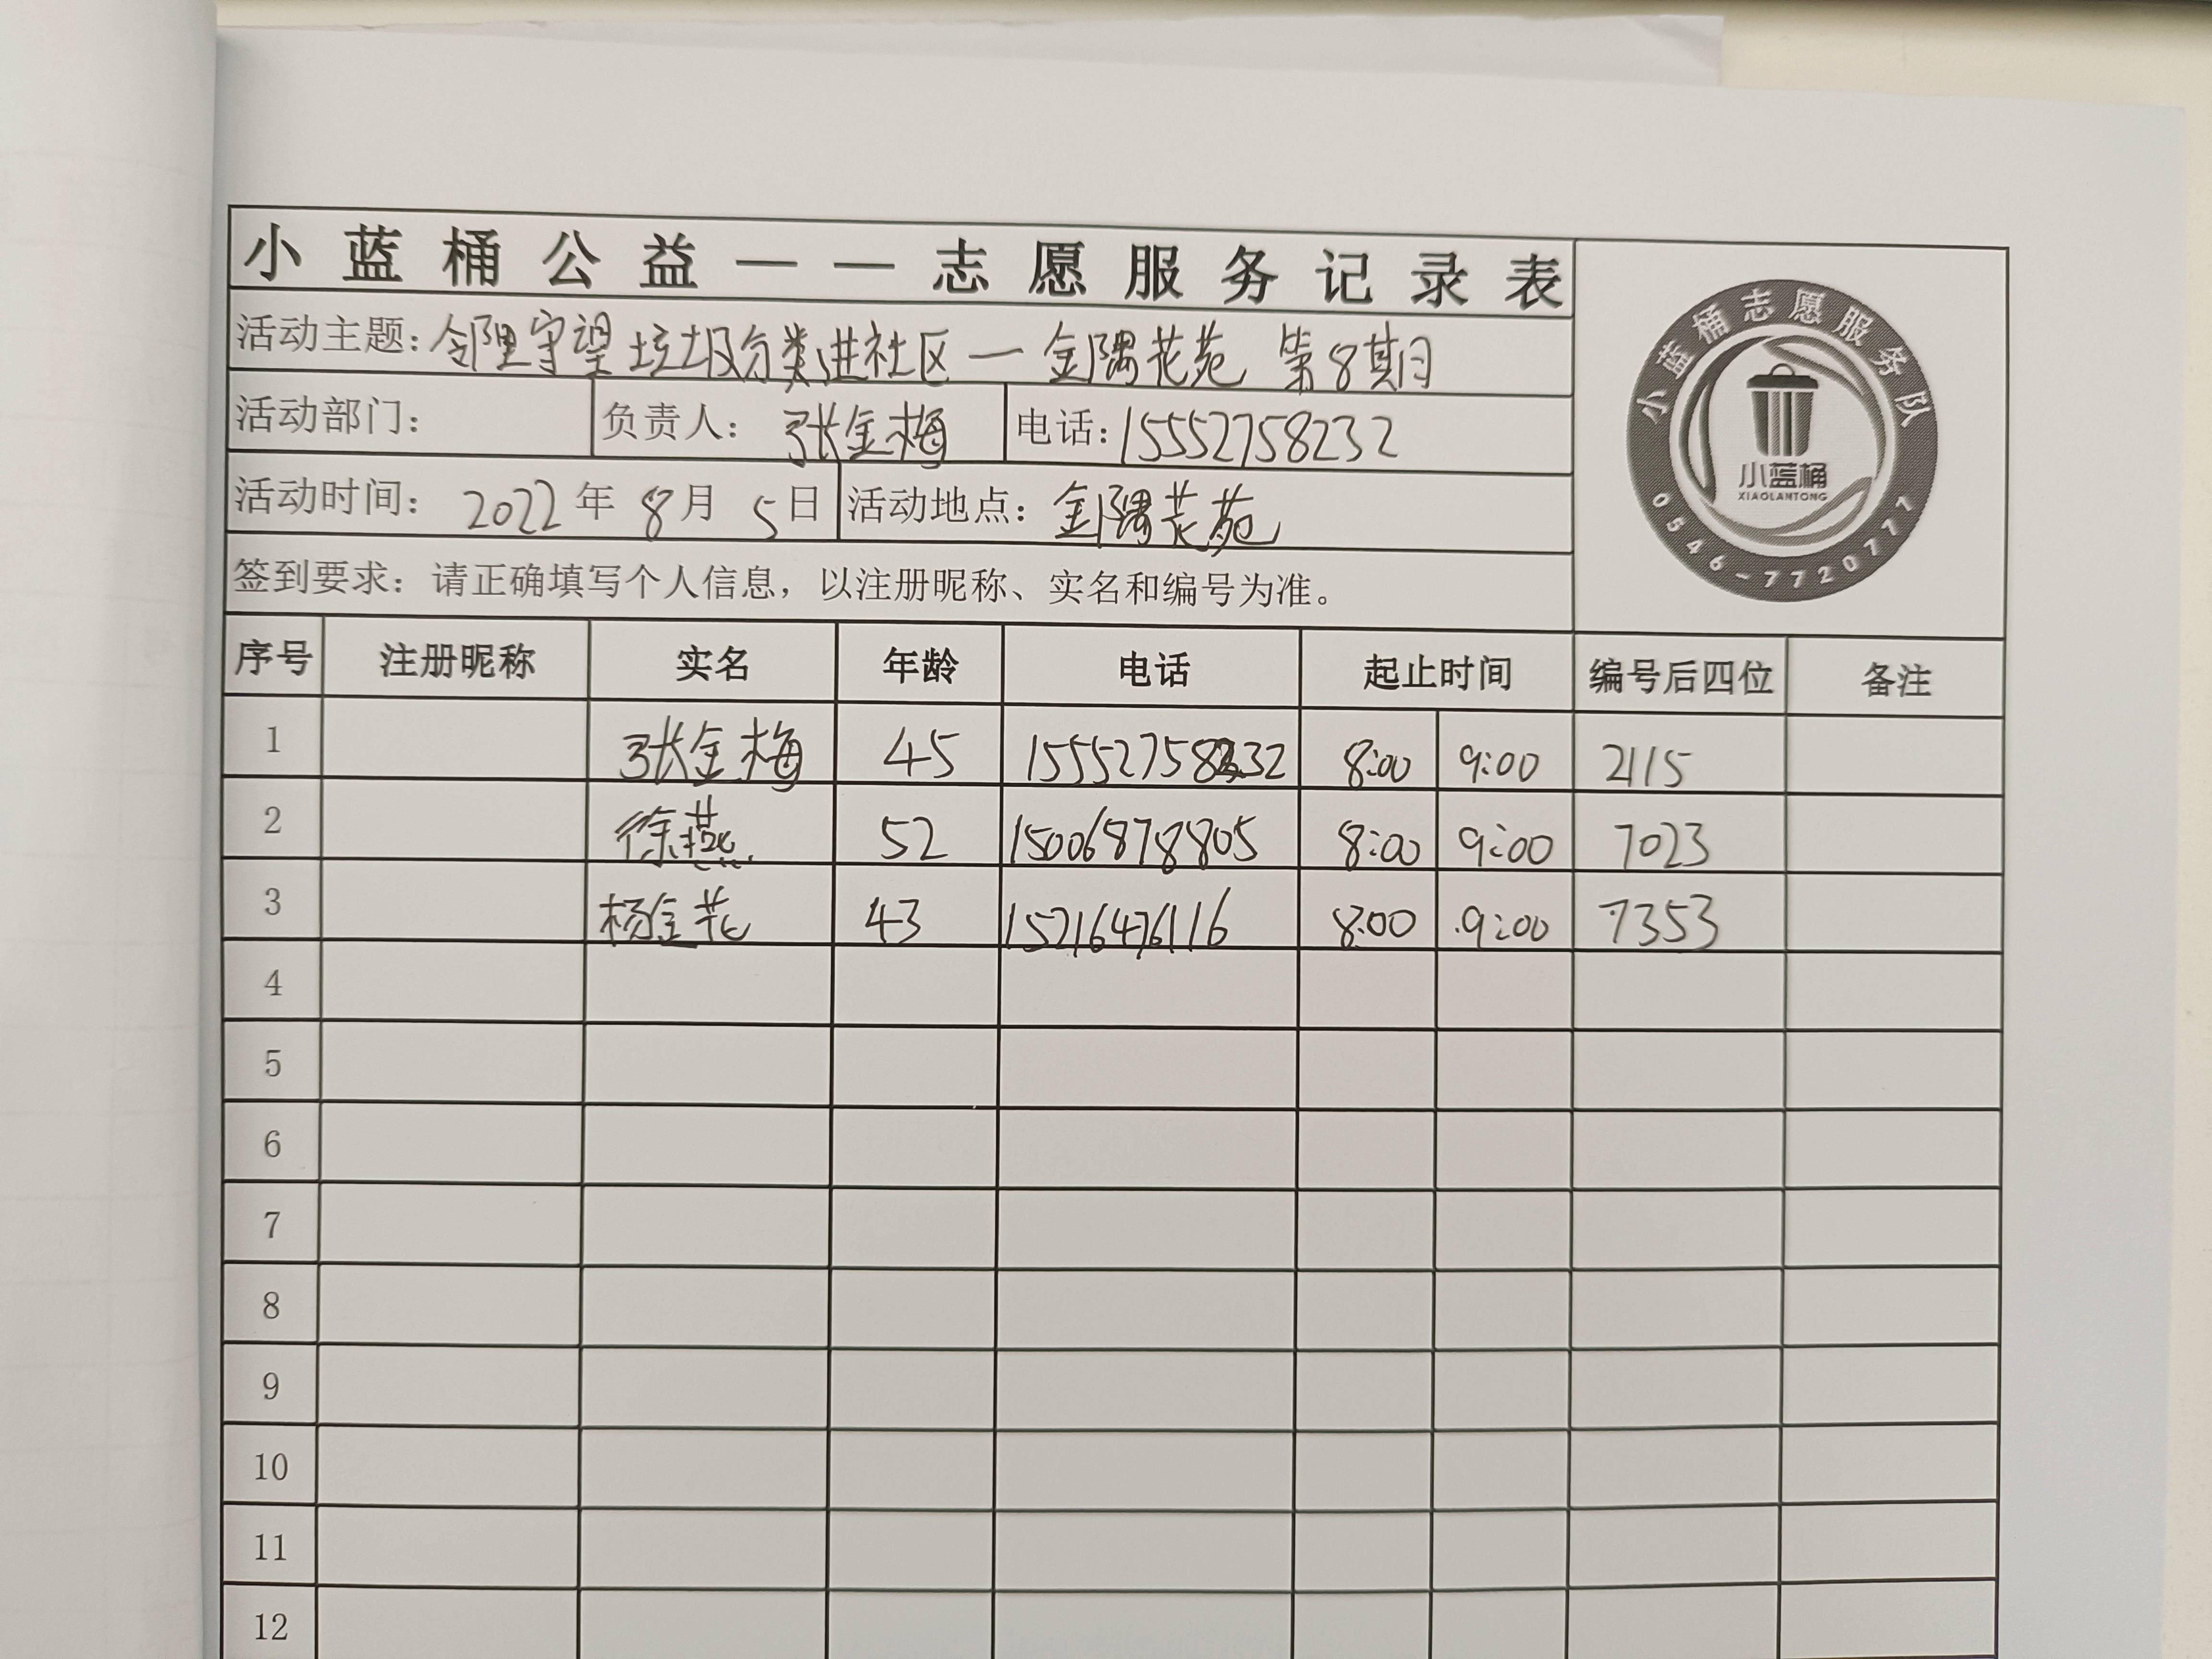 小蓝桶公益——志愿服务记录表
活动主题：邻里守望 垃圾分类进社区 — 金隅花苑 第8期
活动部门： 负责人：张金梅 电话：15552758232
活动时间：2022年 8月 5日 活动地点：金隅花苑
签到要求：请正确填写个人信息，以注册昵称、实名和编号为准。
小蓝桶志愿服务队
小蓝桶
XIAOLANTONG
0546-7720777
序号 注册昵称 实名 年龄 电话 起止时间 编号后四位 备注
1 张金梅 45 15552758232 8:00 9:00 2115
2 徐燕 52 15006878805 8:00 9:00 7023
3 杨金花 43 15216476116 8:00 9:00 7353
4
5
6
7
8
9
10
11
12